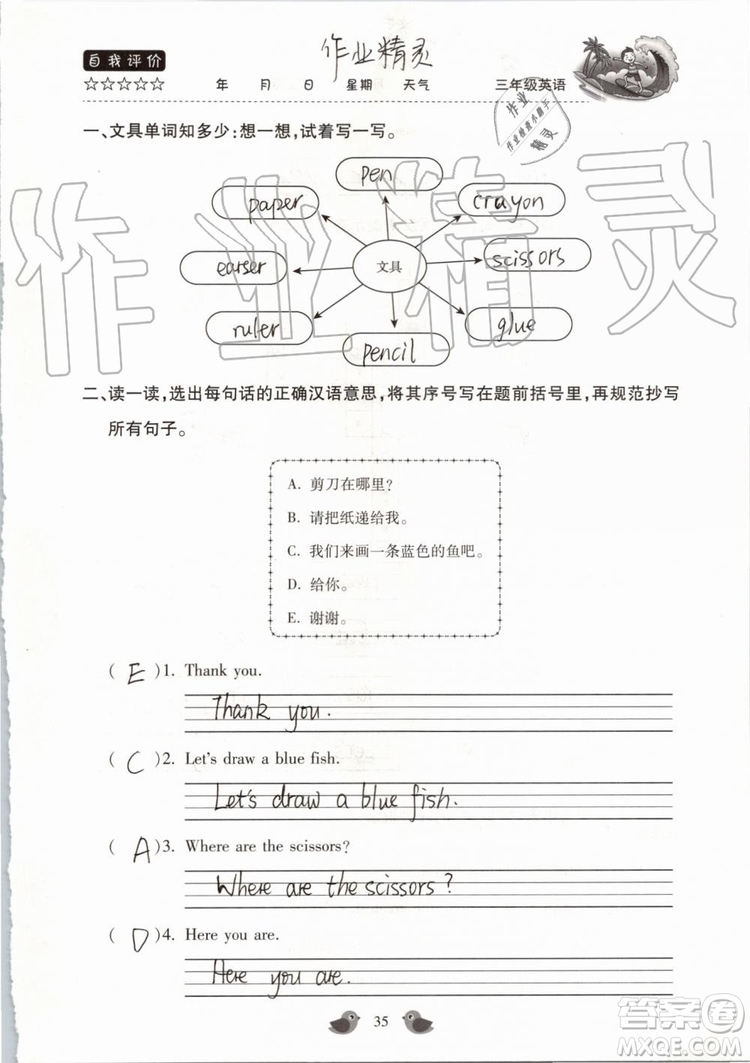 作业精灵
自我评价
☆☆☆☆☆ 年 月 日 星期 天气 三年级英语
作业
作业检查小助手
精灵
一、文具单词知多少:想一想,试着写一写。
pen
paper crayon
earser 文具 scissors
ruler glue
pencil
作业精灵
二、读一读,选出每句话的正确汉语意思,将其序号写在题前括号里,再规范抄写
所有句子。
A. 剪刀在哪里?
B. 请把纸递给我。
C. 我们来画一条蓝色的鱼吧。
D. 给你。
E. 谢谢。
( E )1. Thank you.
Thank you.
( C )2. Let's draw a blue fish.
Let's draw a blue fish.
( A )3. Where are the scissors?
Where are the scissors?
( D )4. Here you are.
Here you are.
35
答案圈
MXQE.COM